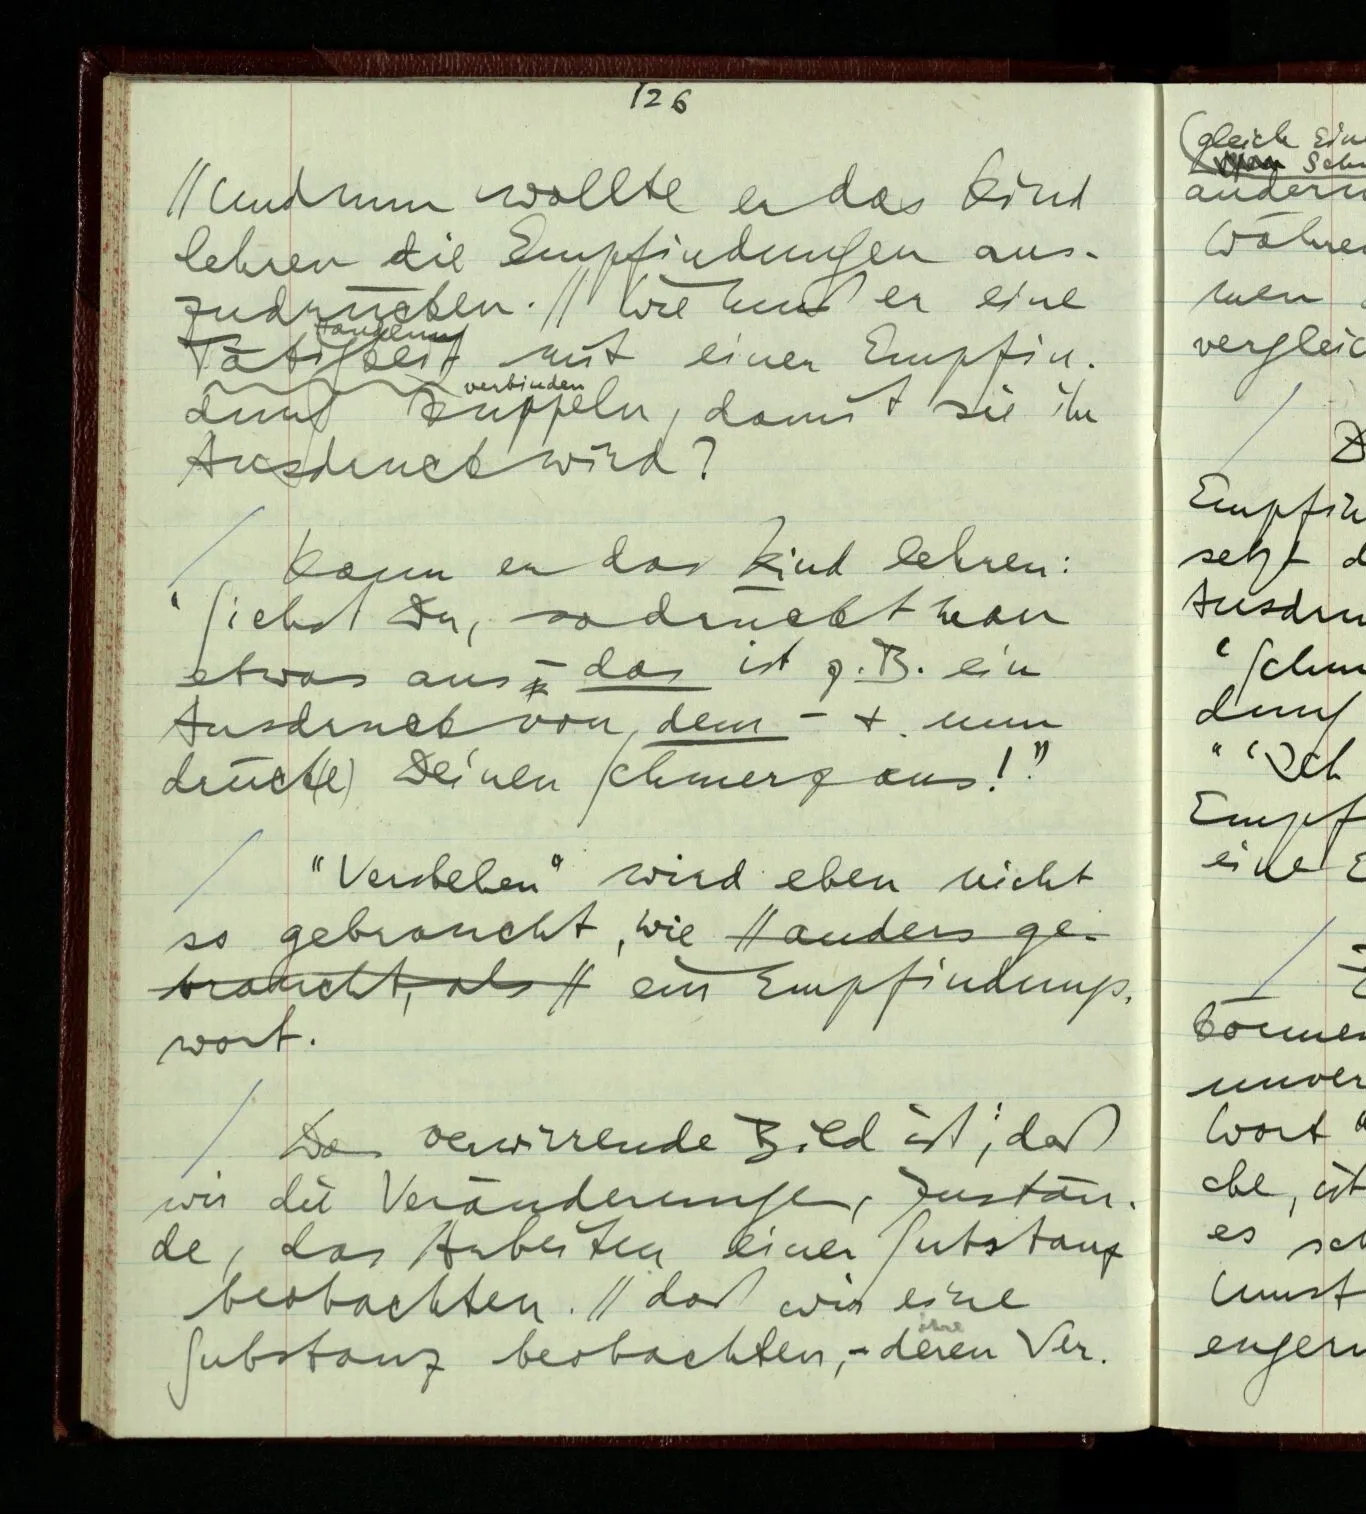 126
// Und nun wollte er das Kind
lehren die Empfindungen aus-
zudrücken. // Wie muß er eine
Tätigkeit mit einer Empfin-
verbinden
dung kuppeln, damit sie ihr
Ausdruck wird?
Kann er das Kind lehren:
"Siehst Du, so drückt man
etwas aus – das ist z.B. ein
Ausdruck von dem – & nun
drück(e) Deinen Schmerz aus!"
"Verstehen" wird eben nicht
so gebraucht, wie // anders ge-
braucht, als // ein Empfindungs-
wort.
Das verwirrende Bild ist; daß
wir die Veränderungen, Zustän-
de, das Arbeiten einer Substanz
beobachten. // daß wir eine
ihre
Substanz beobachten, – deren Ver-
(gleich
andern
men
vergleic
Empfin
setzt d
Ausdru
"Schm
dung
" 'Ich
Empf
eine E
können
unver
Wort
che, ist
es sch
Umst
engern